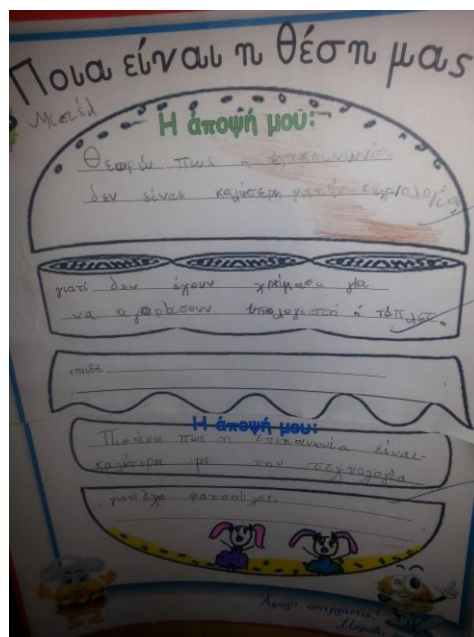 Ποια είναι η θέση μας
Μισέλ
Η άποψή μου:
Θεωρώ πως η επικοινωνία
δεν είναι καλύτερη με την τεχνολογία
γιατί δεν έχουν χρήματα για
να αγοράσουν υπολογιστή ή τάπλετ.
επειδή
Η άποψή μου:
Πιστέυω πως η επικοινωνία είναι
καλύτερη με την τεχνολογία
γιατί έχω